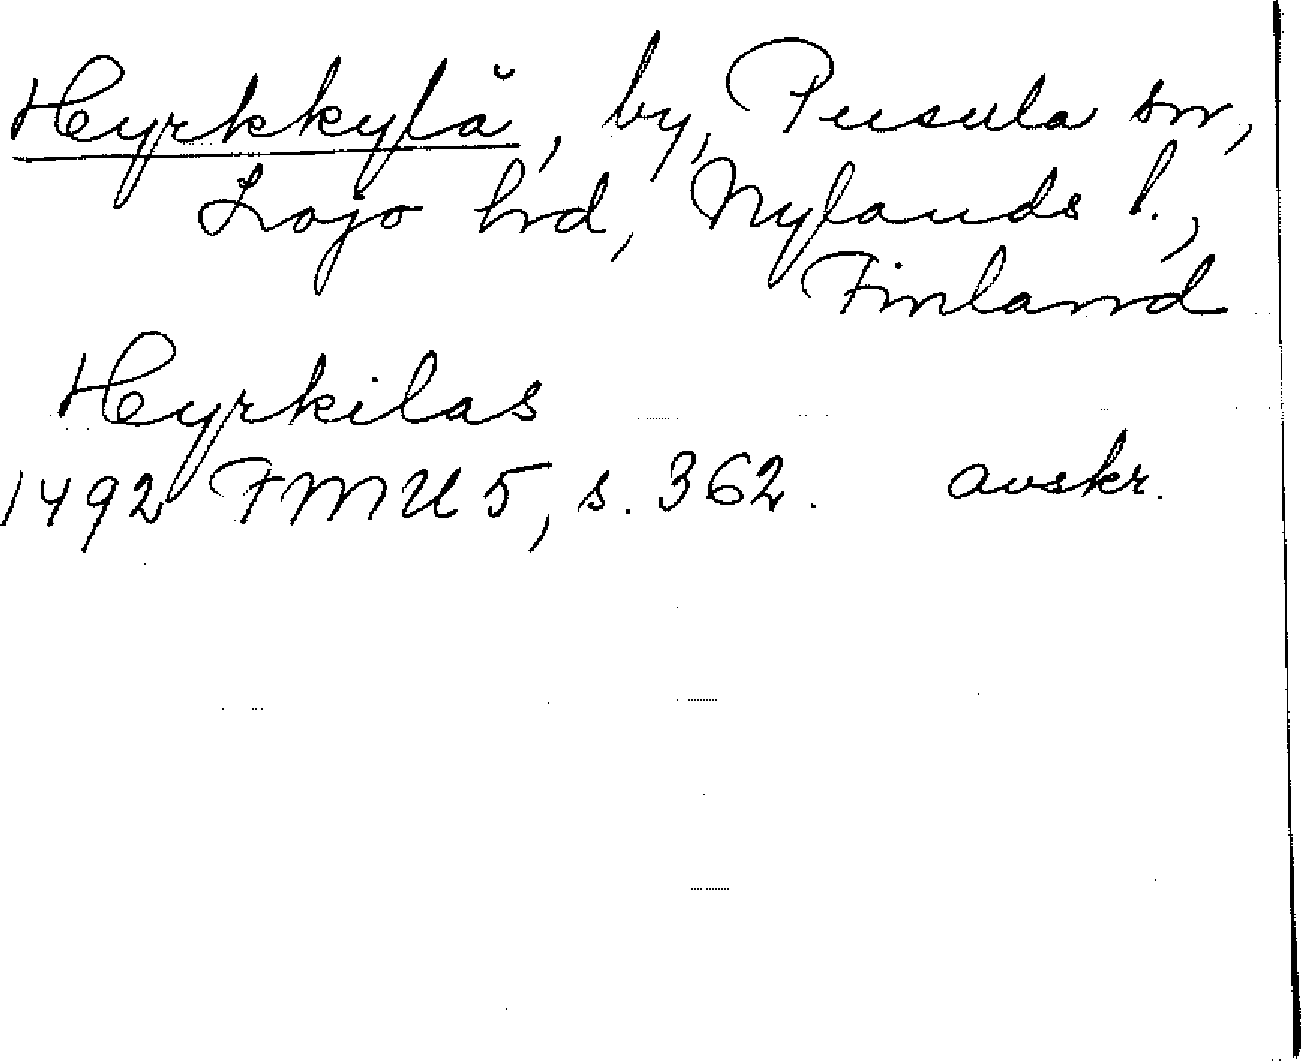 Hyrkkylä, by, Pusula sn,
Lojo hrd, Nylands l.,
Finland
Hyrkilas
1492 FMU 5, s. 362. avskr.